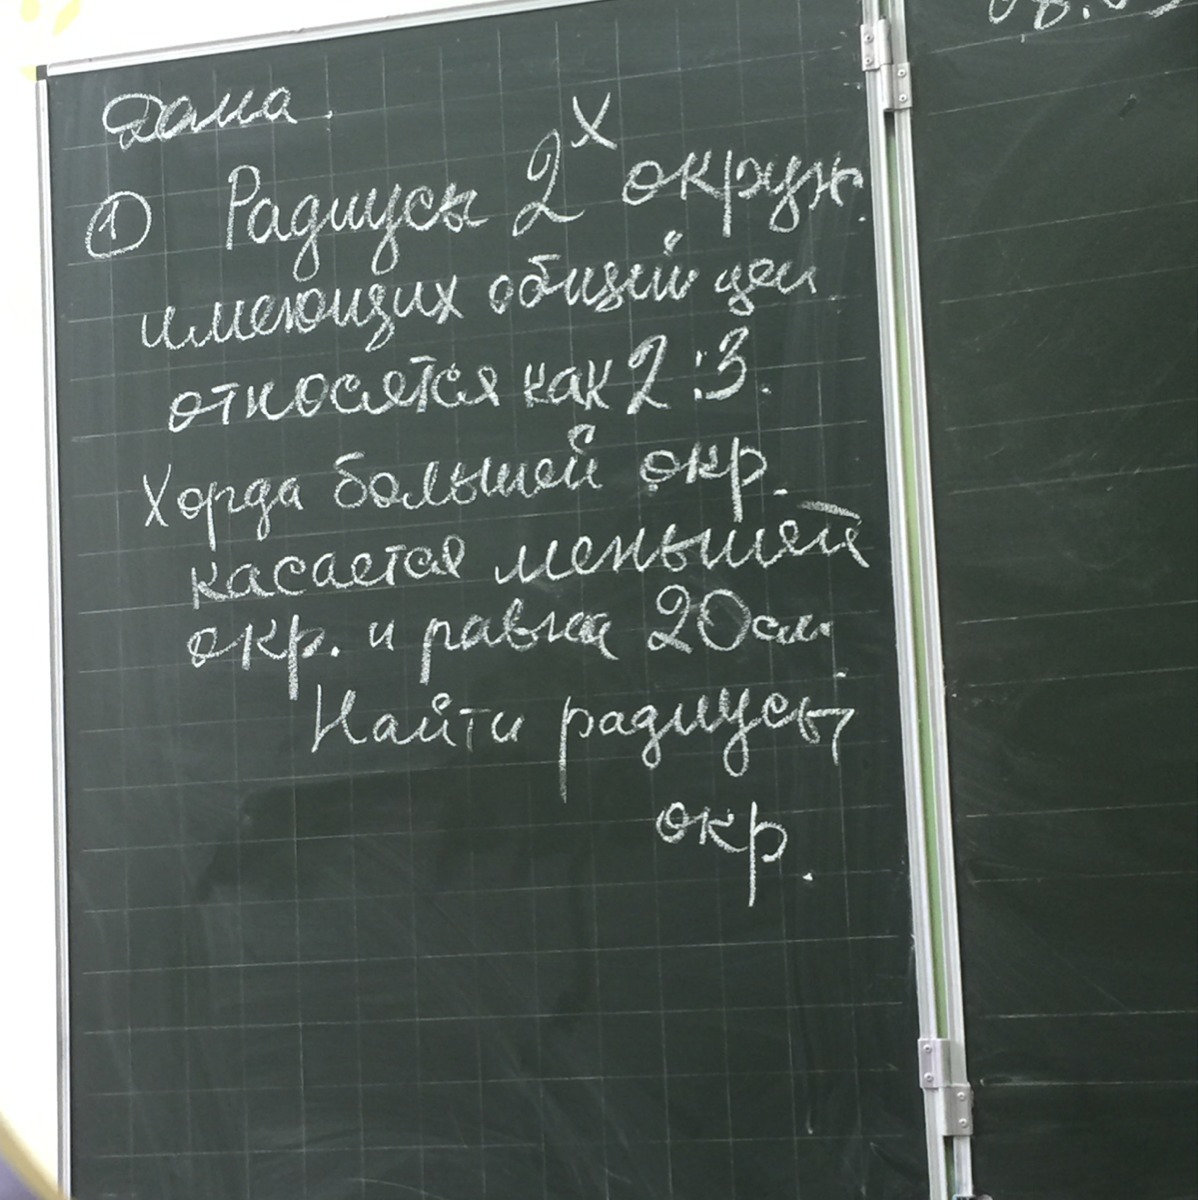 Дома.
① Радиусы 2ˣ окруж.
имеющих общий цен
относятся как 2:3.
Хорда большей окр.
касается меньшей
окр. и равна 20 см.
Найти радиусы
окр.